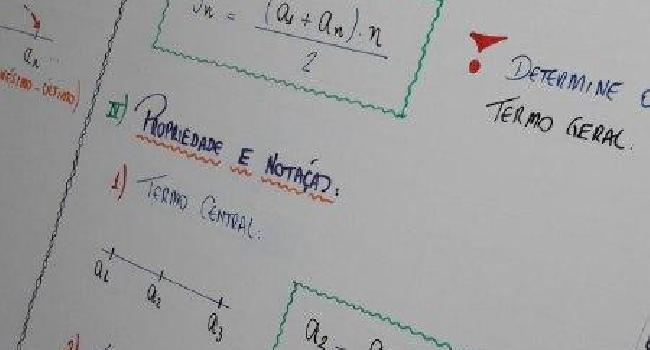 Sn = (a1 + an) · n
2
an ...
DETERMINE
TERMO GERAL.
II) PROPRIEDADE E NOTAÇÃO:
1) TERMO CENTRAL:
a1
a2
a3
a2 =
2)